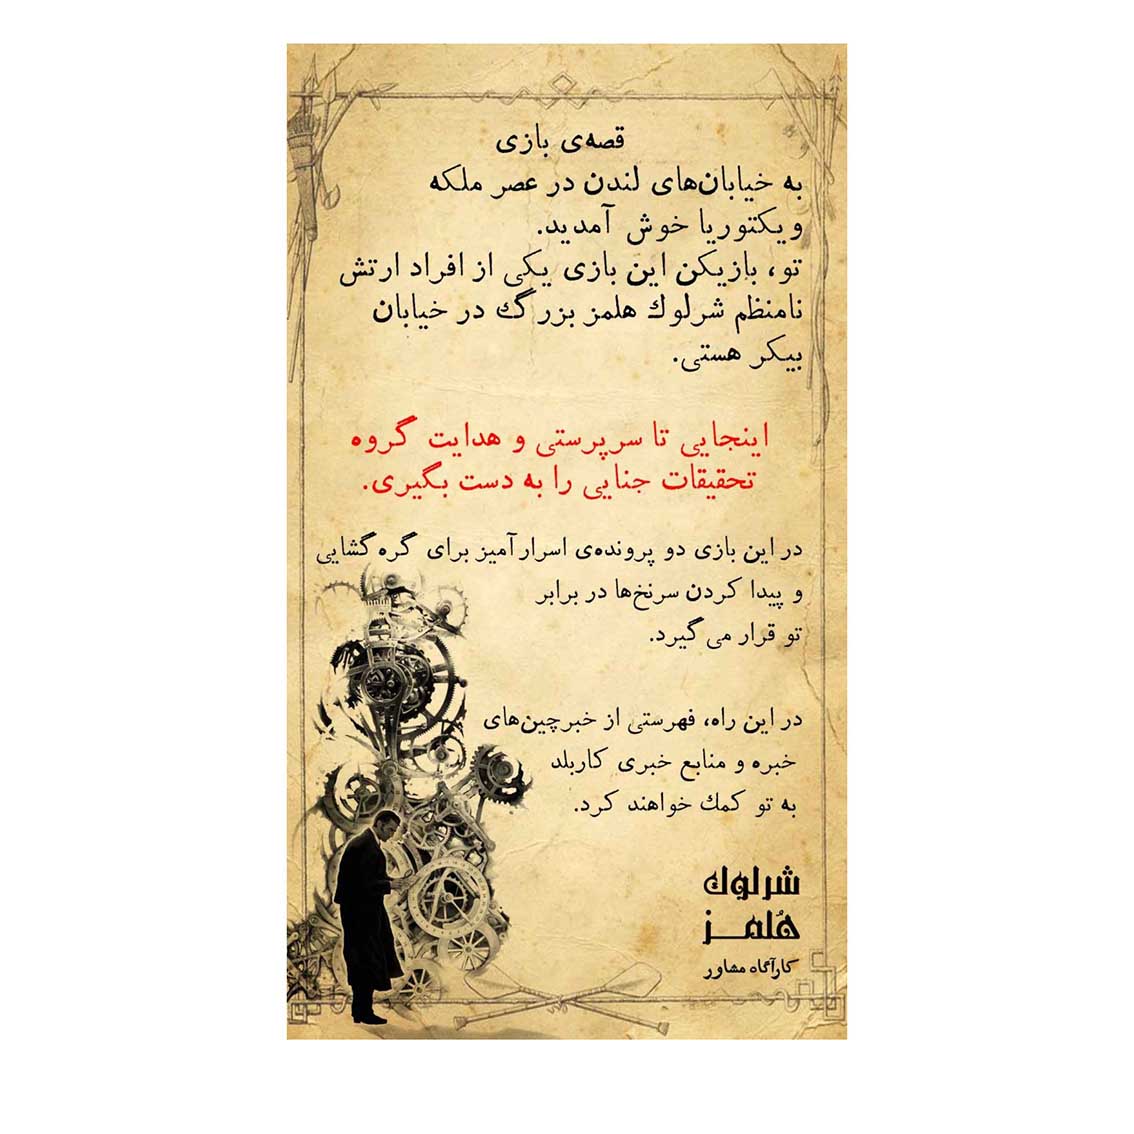 قصه‌ی بازی
به خیابان‌های لندن در عصر ملکه
ویکتوریا خوش آمدید.
تو، بازیکن این بازی یکی از افراد ارتش
نامنظم شرلوك هلمز بزرگ در خیابان
بیکر هستی.
اینجایی تا سرپرستی و هدایت گروه
تحقیقات جنایی را به دست بگیری.
در این بازی دو پرونده‌ی اسرارآمیز برای گره گشایی
و پیدا کردن سرنخ‌ها در برابر
تو قرار می گیرد.
در این راه، فهرستی از خبرچین‌های
خبره و منابع خبری کاربلد
به تو کمك خواهند کرد.
شرلوك
هُلمز
کارآگاه مشاور